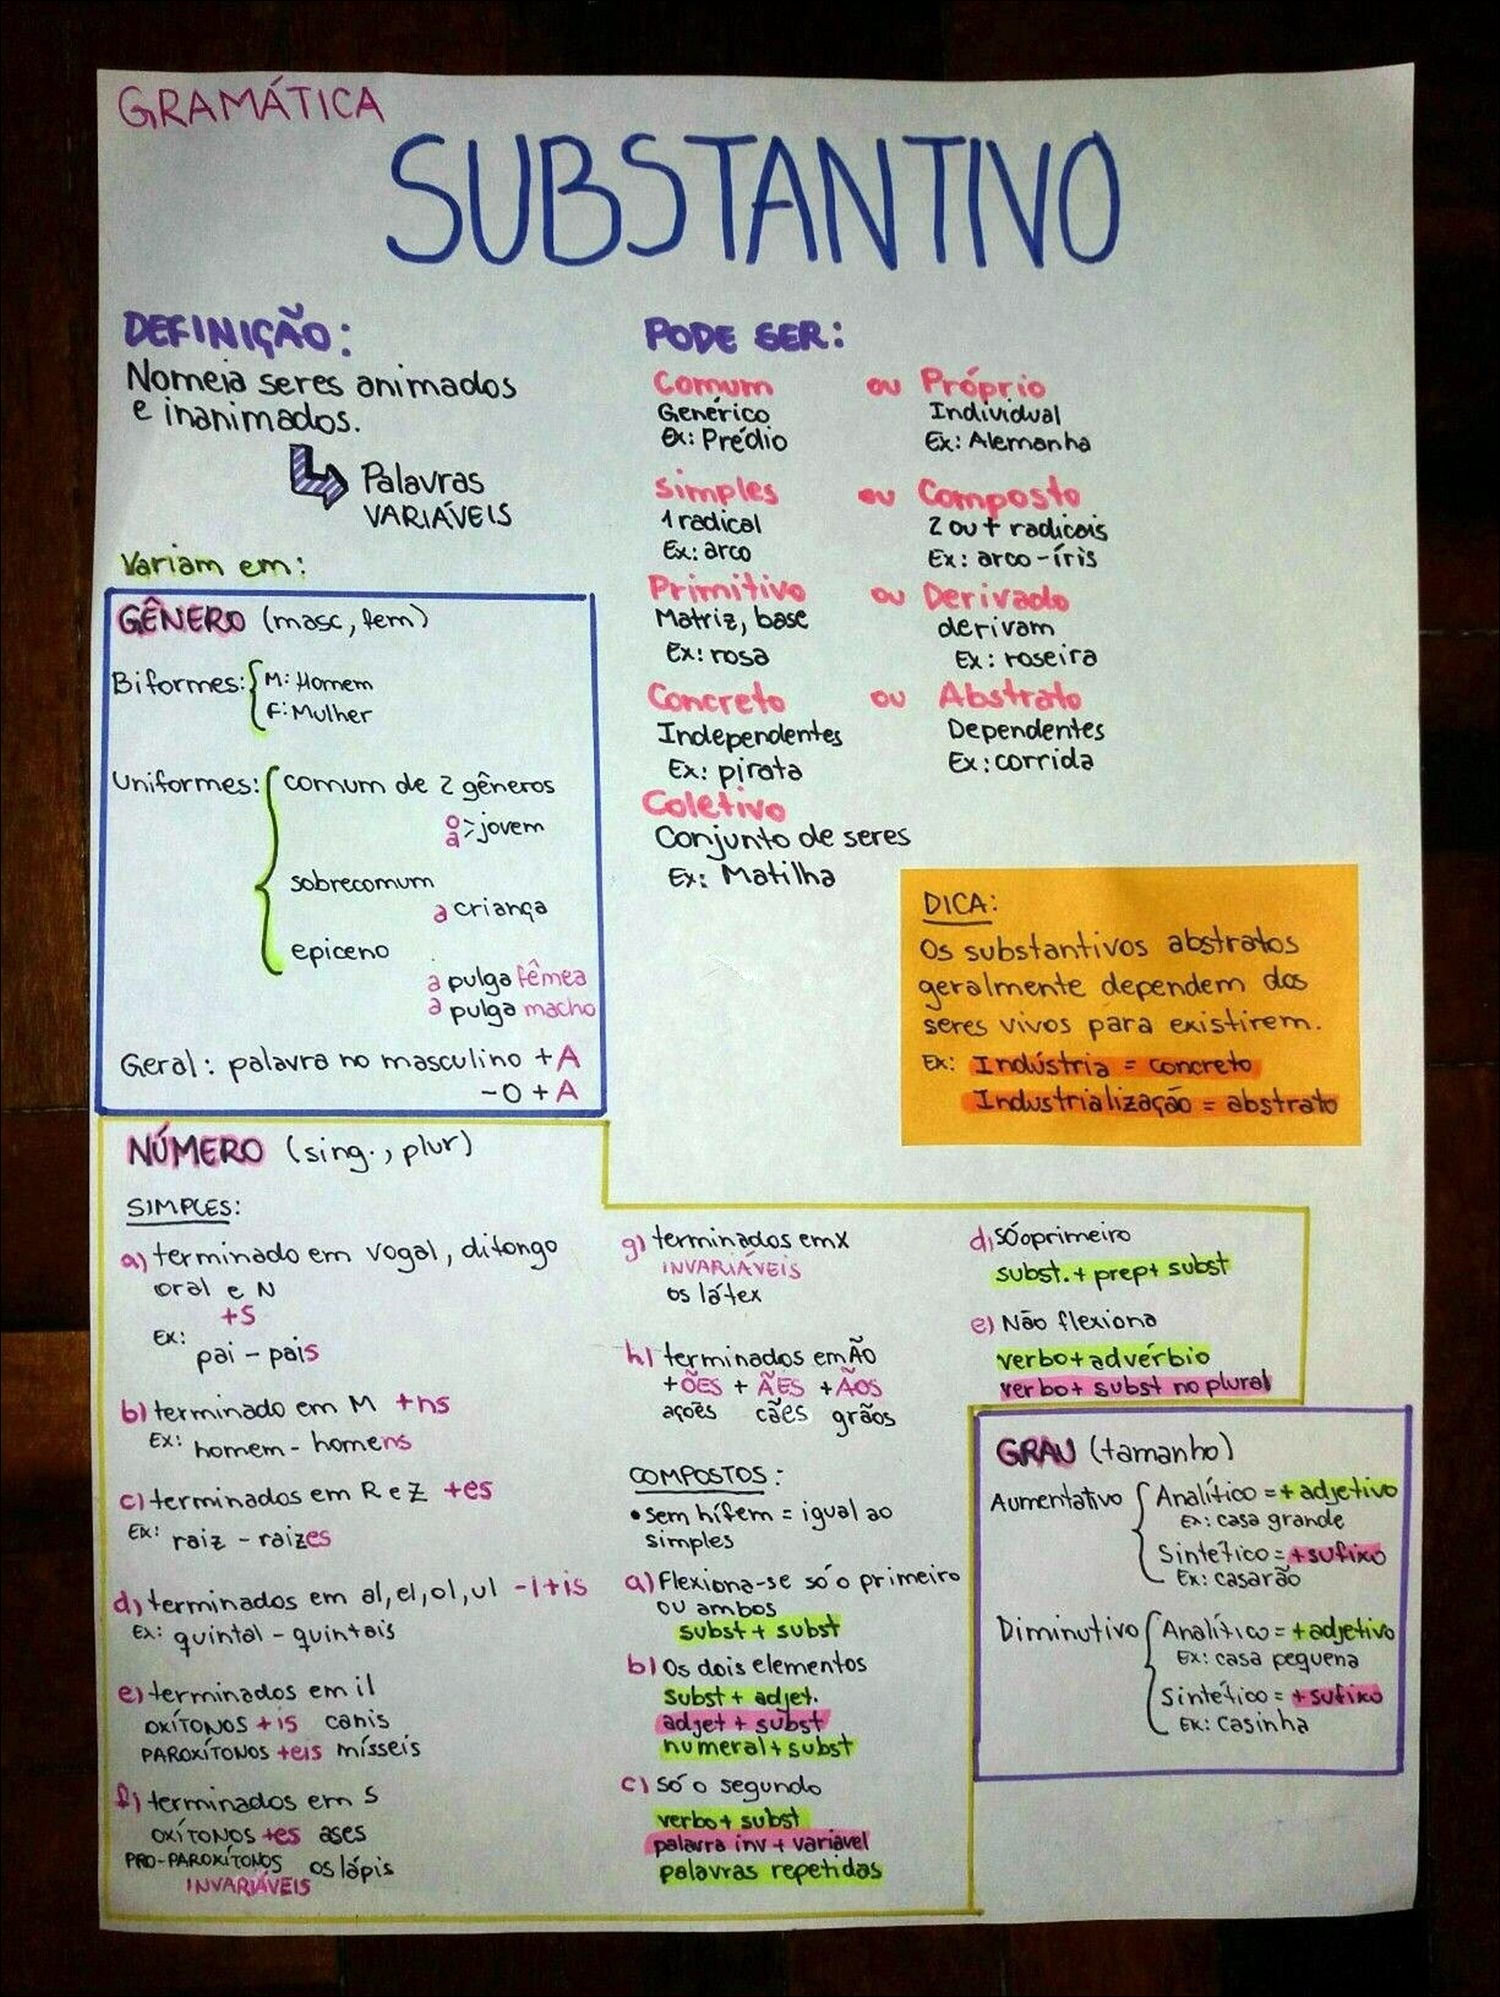 GRAMÁTICA
SUBSTANTIVO
DEFINIÇÃO:
Nomeia seres animados
e inanimados.
Palavras
VARIÁVEIS
Variam em:
GÊNERO (masc, fem)
Biformes: M: Homem
F: Mulher
Uniformes: comum de 2 gêneros
o
a > jovem
sobrecomum
a criança
epiceno
a pulga fêmea
a pulga macho
Geral: palavra no masculino + A
- O + A
PODE SER:
Comum ou Próprio
Genérico Individual
Ex: Prédio Ex: Alemanha
Simples ou Composto
1 radical 2 ou + radicais
Ex: arco Ex: arco-íris
Primitivo ou Derivado
Matriz, base derivam
Ex: rosa Ex: roseira
Concreto ou Abstrato
Independentes Dependentes
Ex: pirata Ex: corrida
Coletivo
Conjunto de seres
Ex: Matilha
DICA:
Os substantivos abstratos
geralmente dependem dos
seres vivos para existirem.
Ex: Indústria = concreto
Industrialização = abstrato
NÚMERO (sing., plur)
SIMPLES:
a) terminado em vogal, ditongo
oral e N
+S
Ex:
pai - pais
b) terminado em M +ns
Ex: homem - homens
c) terminados em R e Z +es
Ex: raiz - raizes
d) terminados em al, el, ol, ul -l+is
Ex: quintal - quintais
e) terminados em il
OXÍTONOS +is canis
PAROXÍTONOS +eis mísseis
f) terminados em S
OXÍTONOS +es ases
PRO-PAROXÍTONOS os lápis
INVARIÁVEIS
g) terminados em X
INVARIÁVEIS
os látex
h) terminados em ÃO
+ÕES + ÃES +ÃOS
ações cães grãos
COMPOSTOS:
• sem hífem = igual ao
simples
a) Flexiona-se só o primeiro
ou ambos
subst + subst
b) Os dois elementos
subst + adjet.
adjet + subst
numeral + subst
c) Só o segundo
verbo + subst
palavra inv + variável
palavras repetidas
d) só o primeiro
subst. + prep + subst
e) Não flexiona
verbo + advérbio
verbo + subst no plural
GRAU (tamanho)
Aumentativo Analítico = + adjetivo
Ex: casa grande
Sintético = + sufixo
Ex: casarão
Diminutivo Analítico = + adjetivo
Ex: casa pequena
Sintético = + sufixo
Ex: casinha